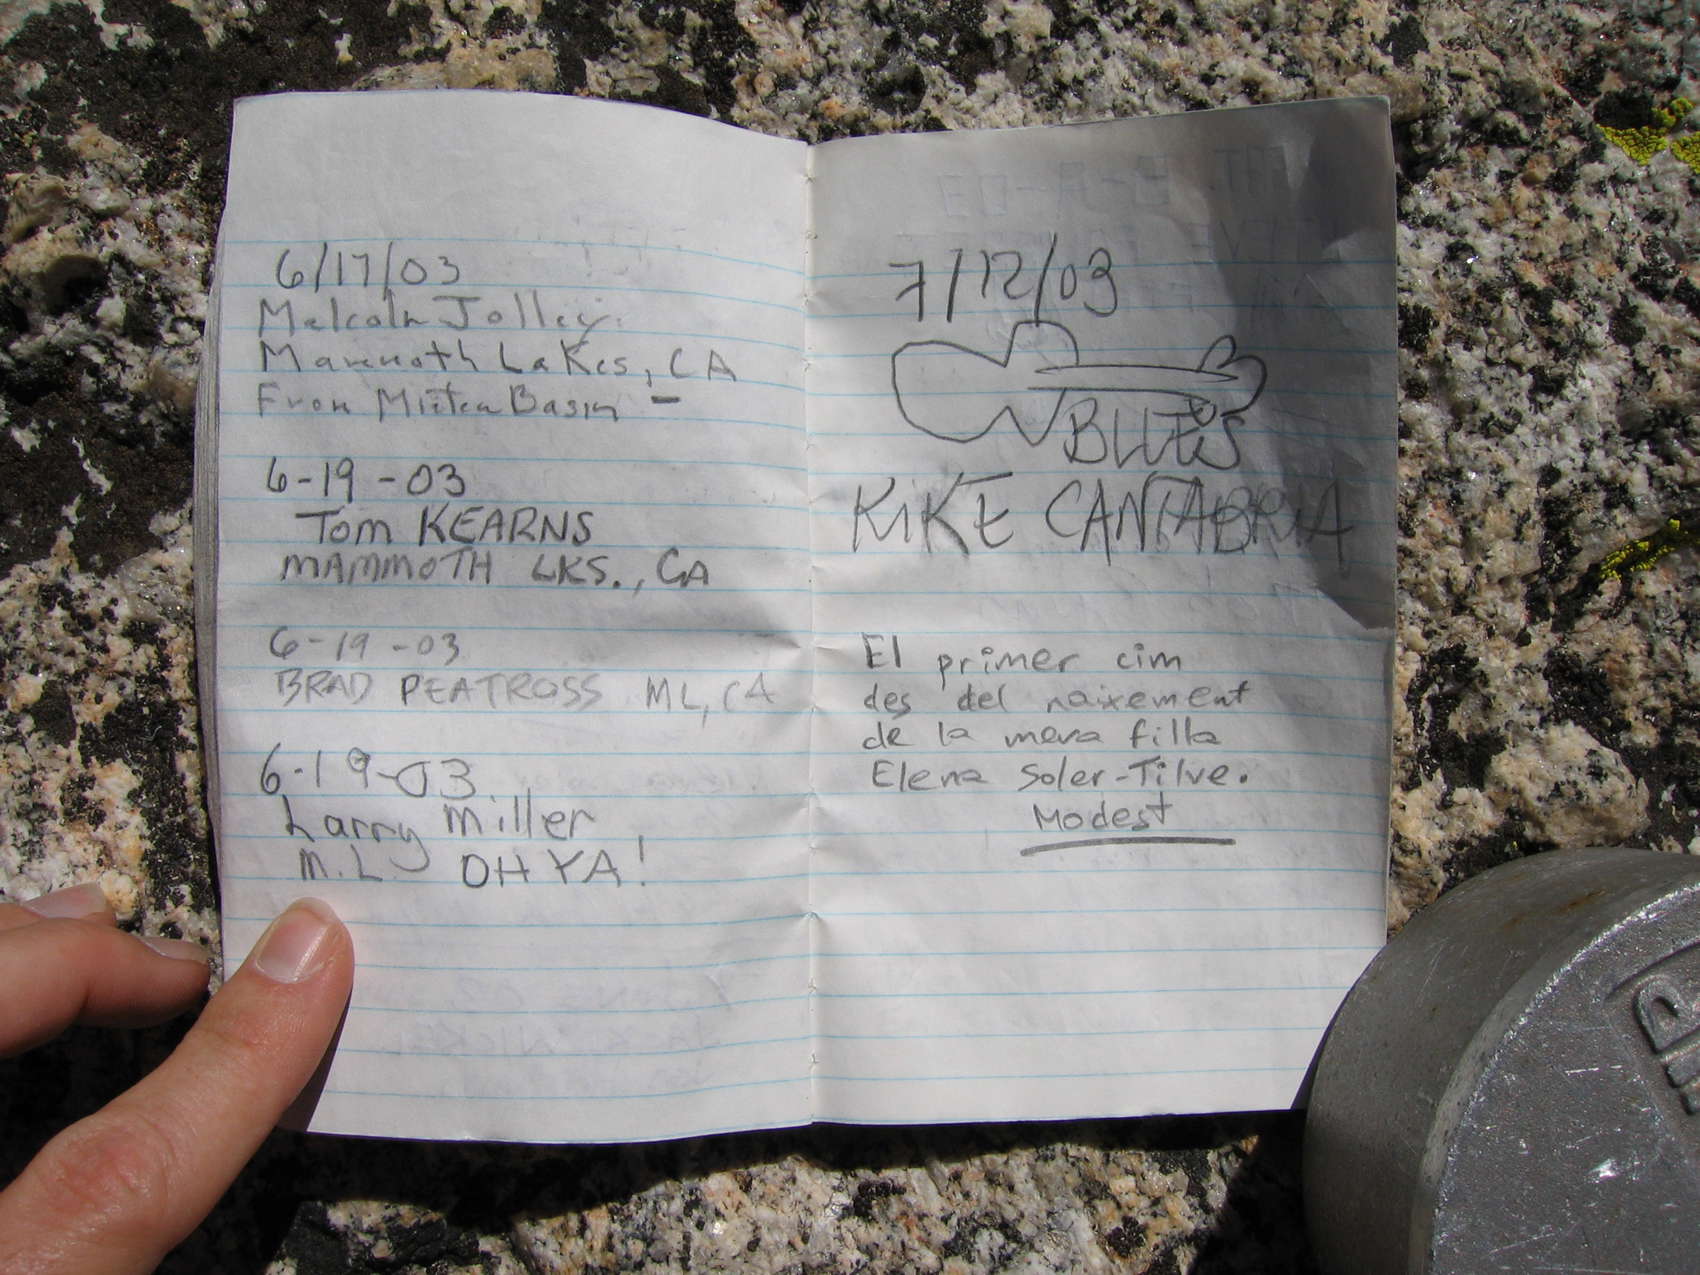 6/17/03
Malcolm Jolley.
Mammoth Lakes, CA
From Basin -
6-19-03
Tom KEARNS
MAMMOTH LKS., CA
6-19-03
BRAD PEATROSS ML, CA
6-19-03
Larry Miller
M.L. OH YA!
7/12/03
BLUES
KIKE CANTABRIA
El primer cim
des del naixement
de la meva filla
Elena Soler-Tilve.
Modest